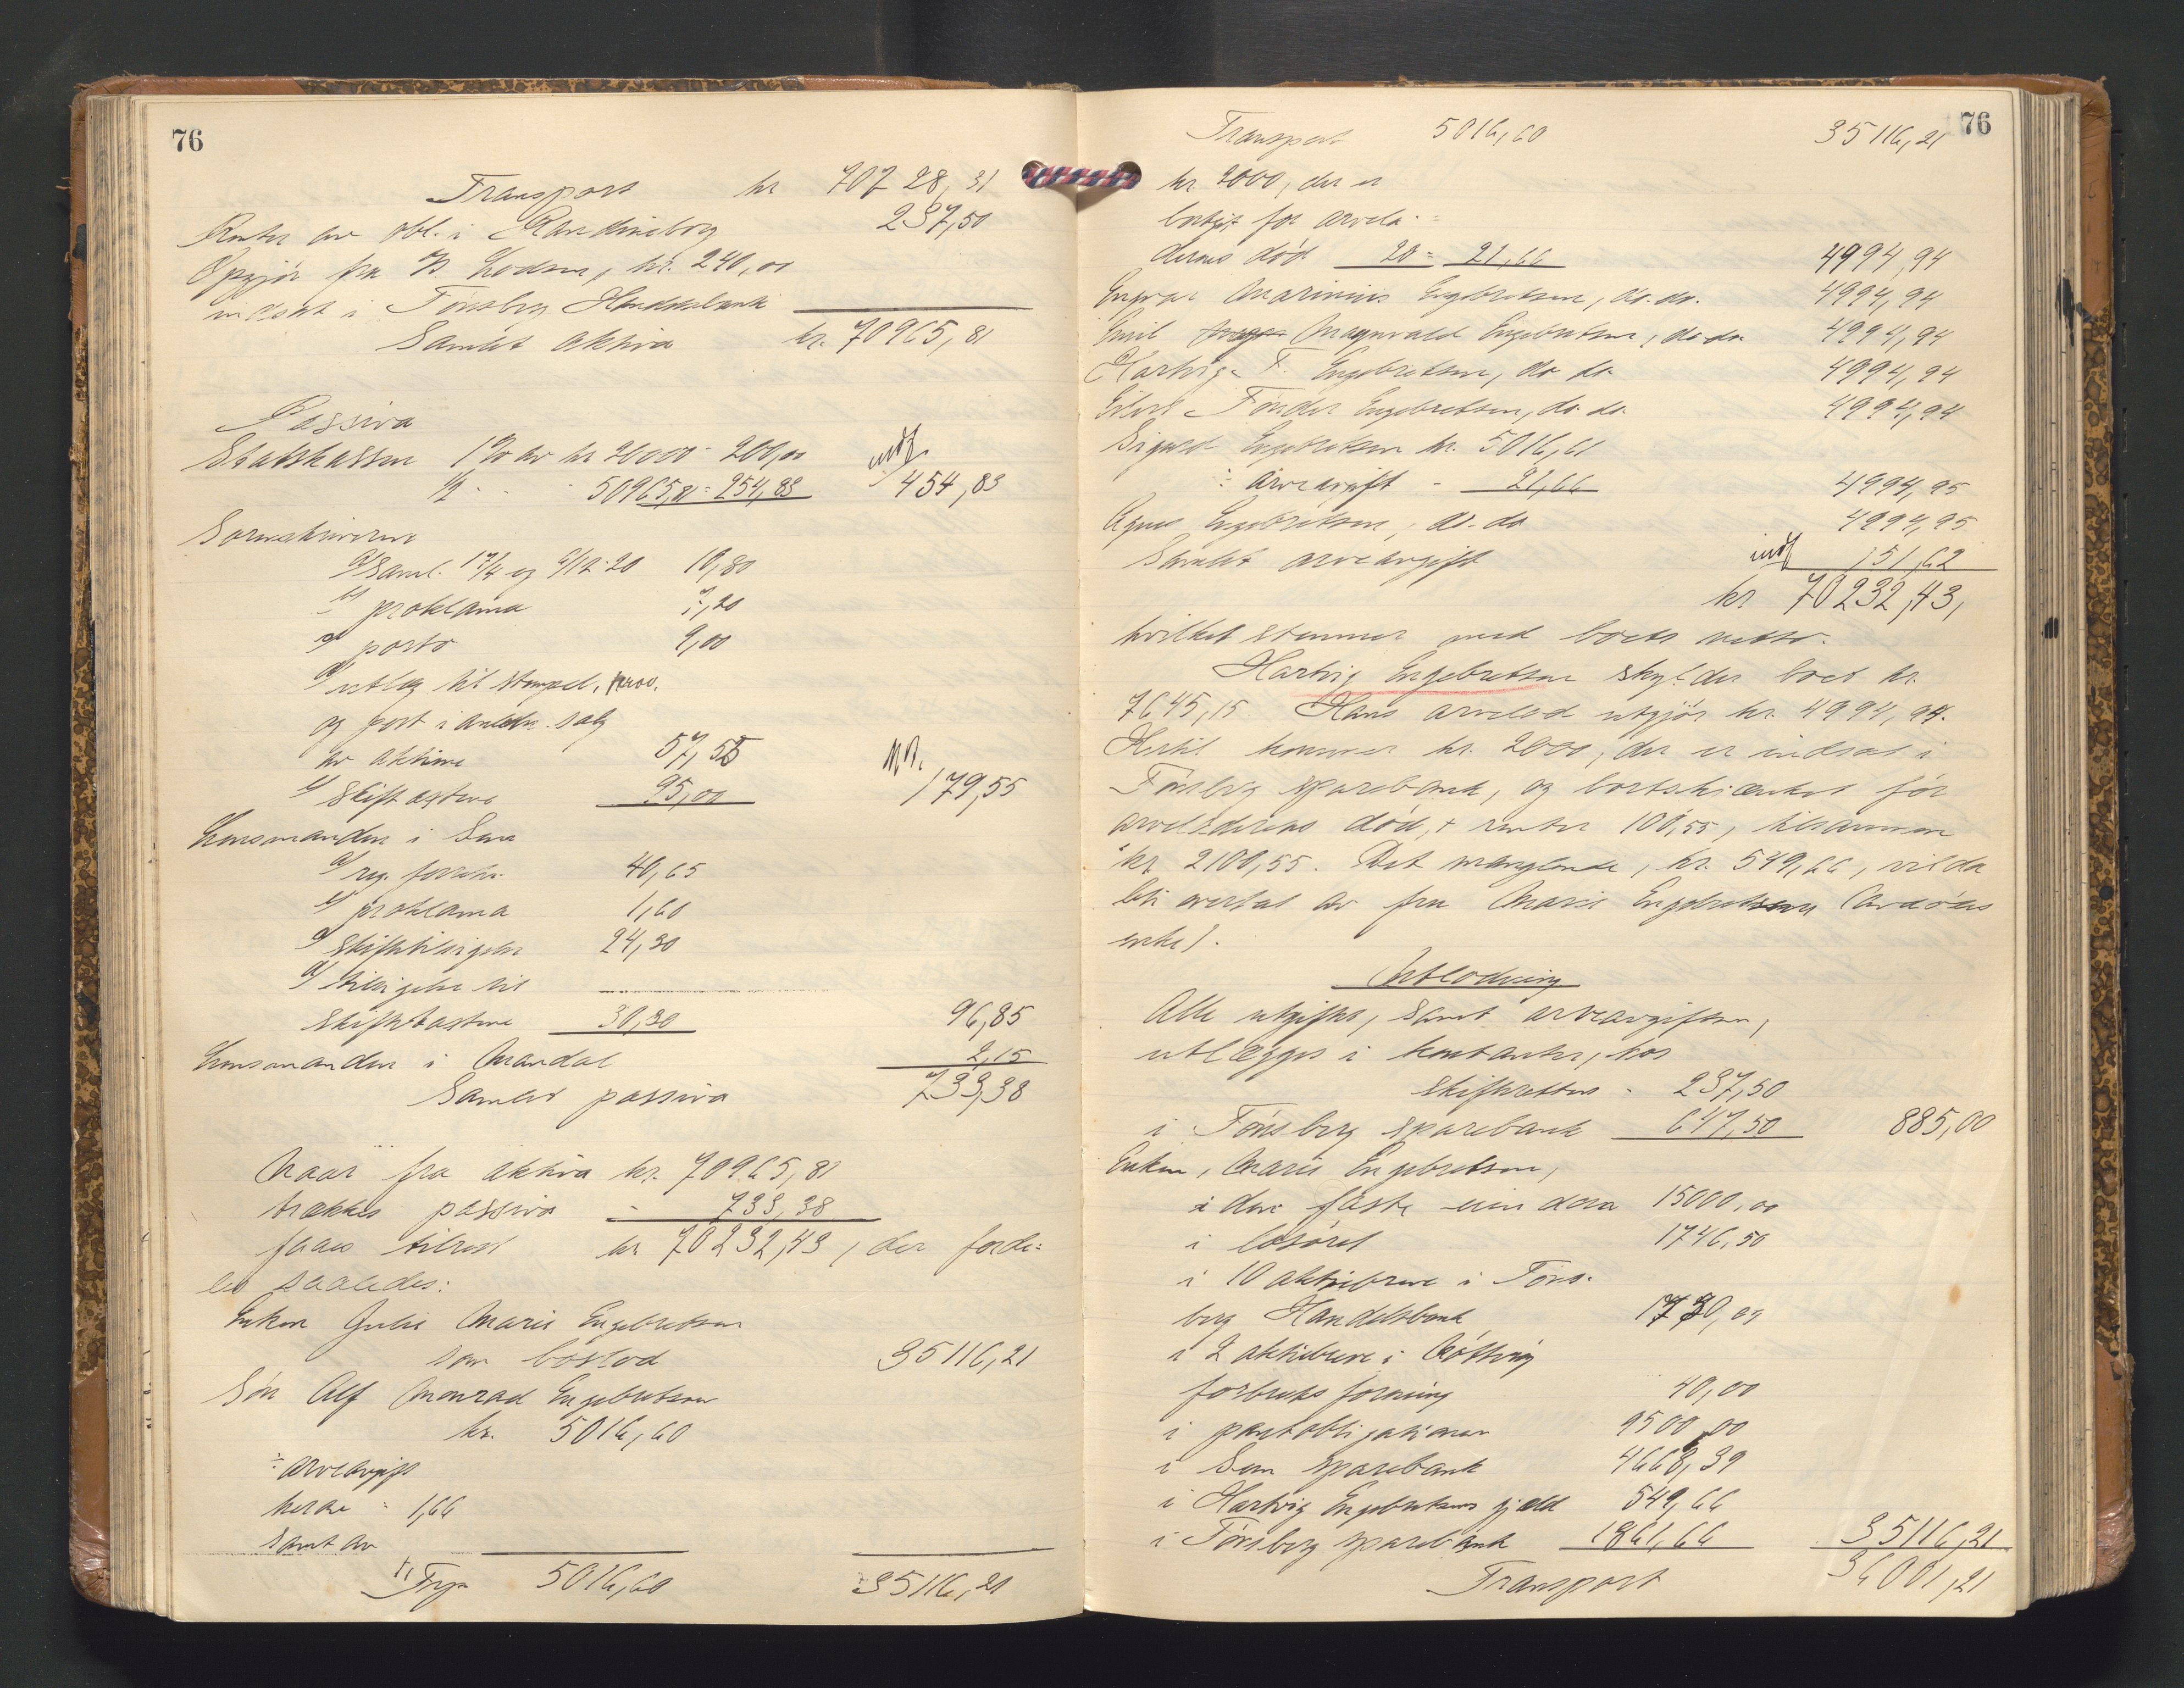 76
Transport kr 70728,31
Renter av obl. i 237,50
Opgjör fra Lodsen, kr. 240,00
indsat i Tönsberg Handelsbank
Samlet aktiva kr. 70965,81
Passiva
Statskassen 1% av kr 20000 = 200,00 indf
½ - - - 50965,81 = 254,83 454,83
Sorenskriveren
a) saml. 17/4 og 6/12-20 10,80
b) proklama 7,20
c) porto 9,00
d) utlæg til stempel, prov.
og port i anledn. salg
av aktiene 57,55
e) skifteattest 95,00 179,55
Lensmanden i Sem
a) reg. forretn. 40,65
b) proklama 1,60
c) skiftetilsigelse 24,30
d) tilsigelse til
skifteattesten 30,30 96,85
Lensmanden i Mandal 2,15
Samlet passiva 733,38
Naar fra aktiva kr. 70965,81
trækkes passiva - 733,38
faaes tilrest kr 70232,43, der forde-
les saaledes:
Enken Julie Marie Engebretsen
som boslod 35116,21
Sön Alf Monrad Engebretsen
kr. 5016,60
÷ arveavgift
herav = 1,66
samt av
Trsp 5016,60 35116,21
76
Transport 5016,60 35116,21
kr. 2000, der er
bortgit för arvela-
derens död 20 = 21,66 4994,94
Engvar Marinius Engebretsen, do. do. 4994,94
Emil Magnvald Engebretsen, do do. 4994,94
Hartvig F. Engebretsen, do do 4994,94
Eilert Tender Engebretsen, do. do. 4994,94
Sigurd Engebretsen kr. 5016,61
÷ arveavgift - 21,66 4994,95
Agnes Engebretsen, do. do 4994,95
Samlet arveavgift indf 151,62
kr 70232,43,
hvilket stemmer med boets netto.
Hartvig Engebretsen skylder boet kr.
7645,15. Hans arvelod utgjör kr. 4994,94.
Hertil kommer kr. 2000, der er indsat i
Tönsberg sparebank, og bortskjænket för
arveladerens död, + renter 100,55, tilsammen
kr 2100,55. Det manglende, kr. 549,66, vil da
bli overtat av fru Marie Engebretsen (avdödes
enke).
Utlodning
Alle utgifter, samt arveavgiften,
utlægges i kontanter, hos
skifteretten - 237,50
i Tönsberg sparebank 647,50 885,00
Enken, Marie Engebretsen,
i den faste eiendom 15000,00
i lösöret 1746,50
i 10 aktiebreve i Töns-
berg Handelsbank 1730,00
i 2 aktiebreve i
forbruksforening 40,00
i pantobligationer 9500,00
i Sem sparebank 4668,39
i Hartvig Engebretsens gjæld 549,66
i Tönsberg sparebank 1861,66 35116,21
Transport 36001,21